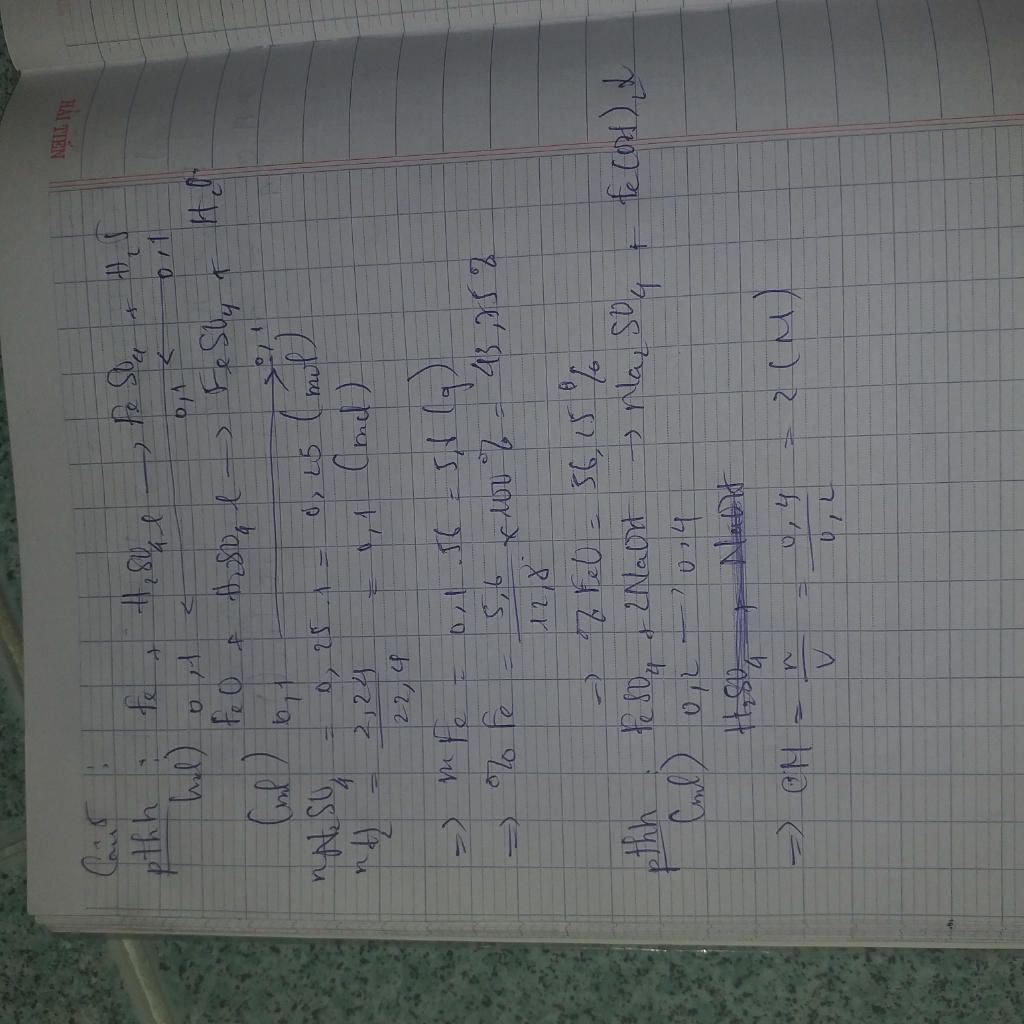 HẢI TIẾN
Câu 5 :
pthh : Fe + H2SO4 l → FeSO4 + H2↑
(mol) 0,1 ← 0,1 ← 0,1
FeO + H2SO4 l → FeSO4 + H2O
(mol) 0,1 → 0,1
nH2SO4 = 0,25.1 = 0,25 (mol)
nH2 = 2,24/22,4 = 0,1 (mol)
=> mFe = 0,1.56 = 5,6 (g)
=> %Fe = 5,6/12,8 x 100% = 43,75%
=> %FeO = 56,25%
pthh : FeSO4 + 2NaOH → Na2SO4 + Fe(OH)2↓
(mol) 0,2 → 0,4
H2SO4 + NaOH
=> CM = n/V = 0,4/0,2 = 2 (M)